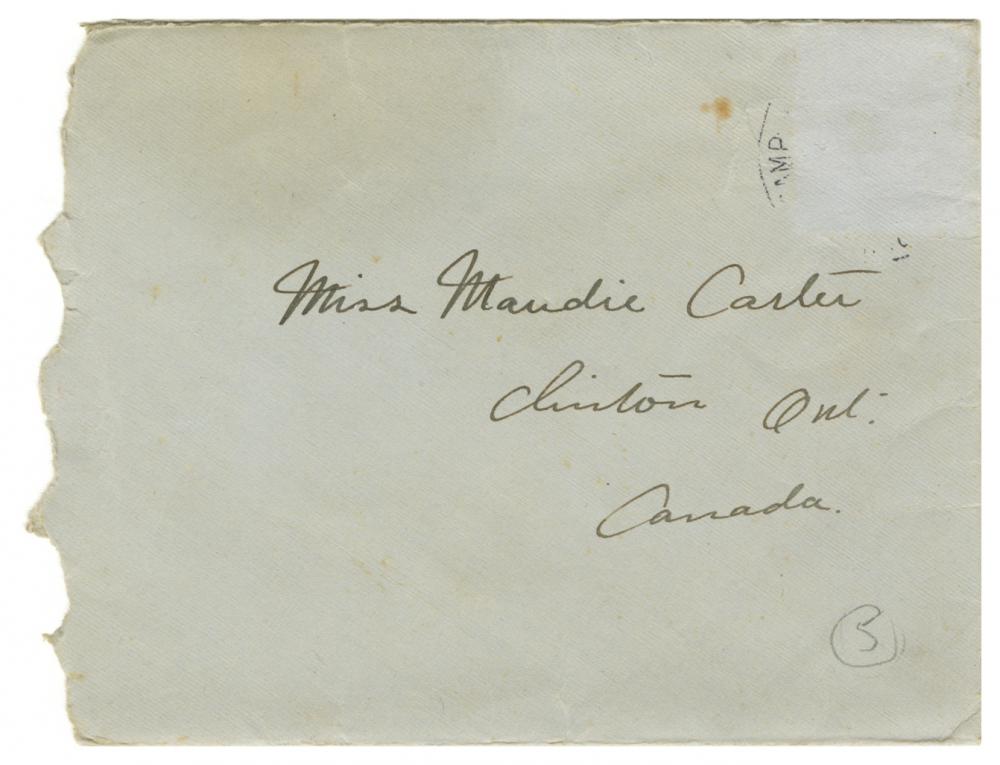 AMP
Miss Maudie Carter
Clinton Ont.
Canada.
5